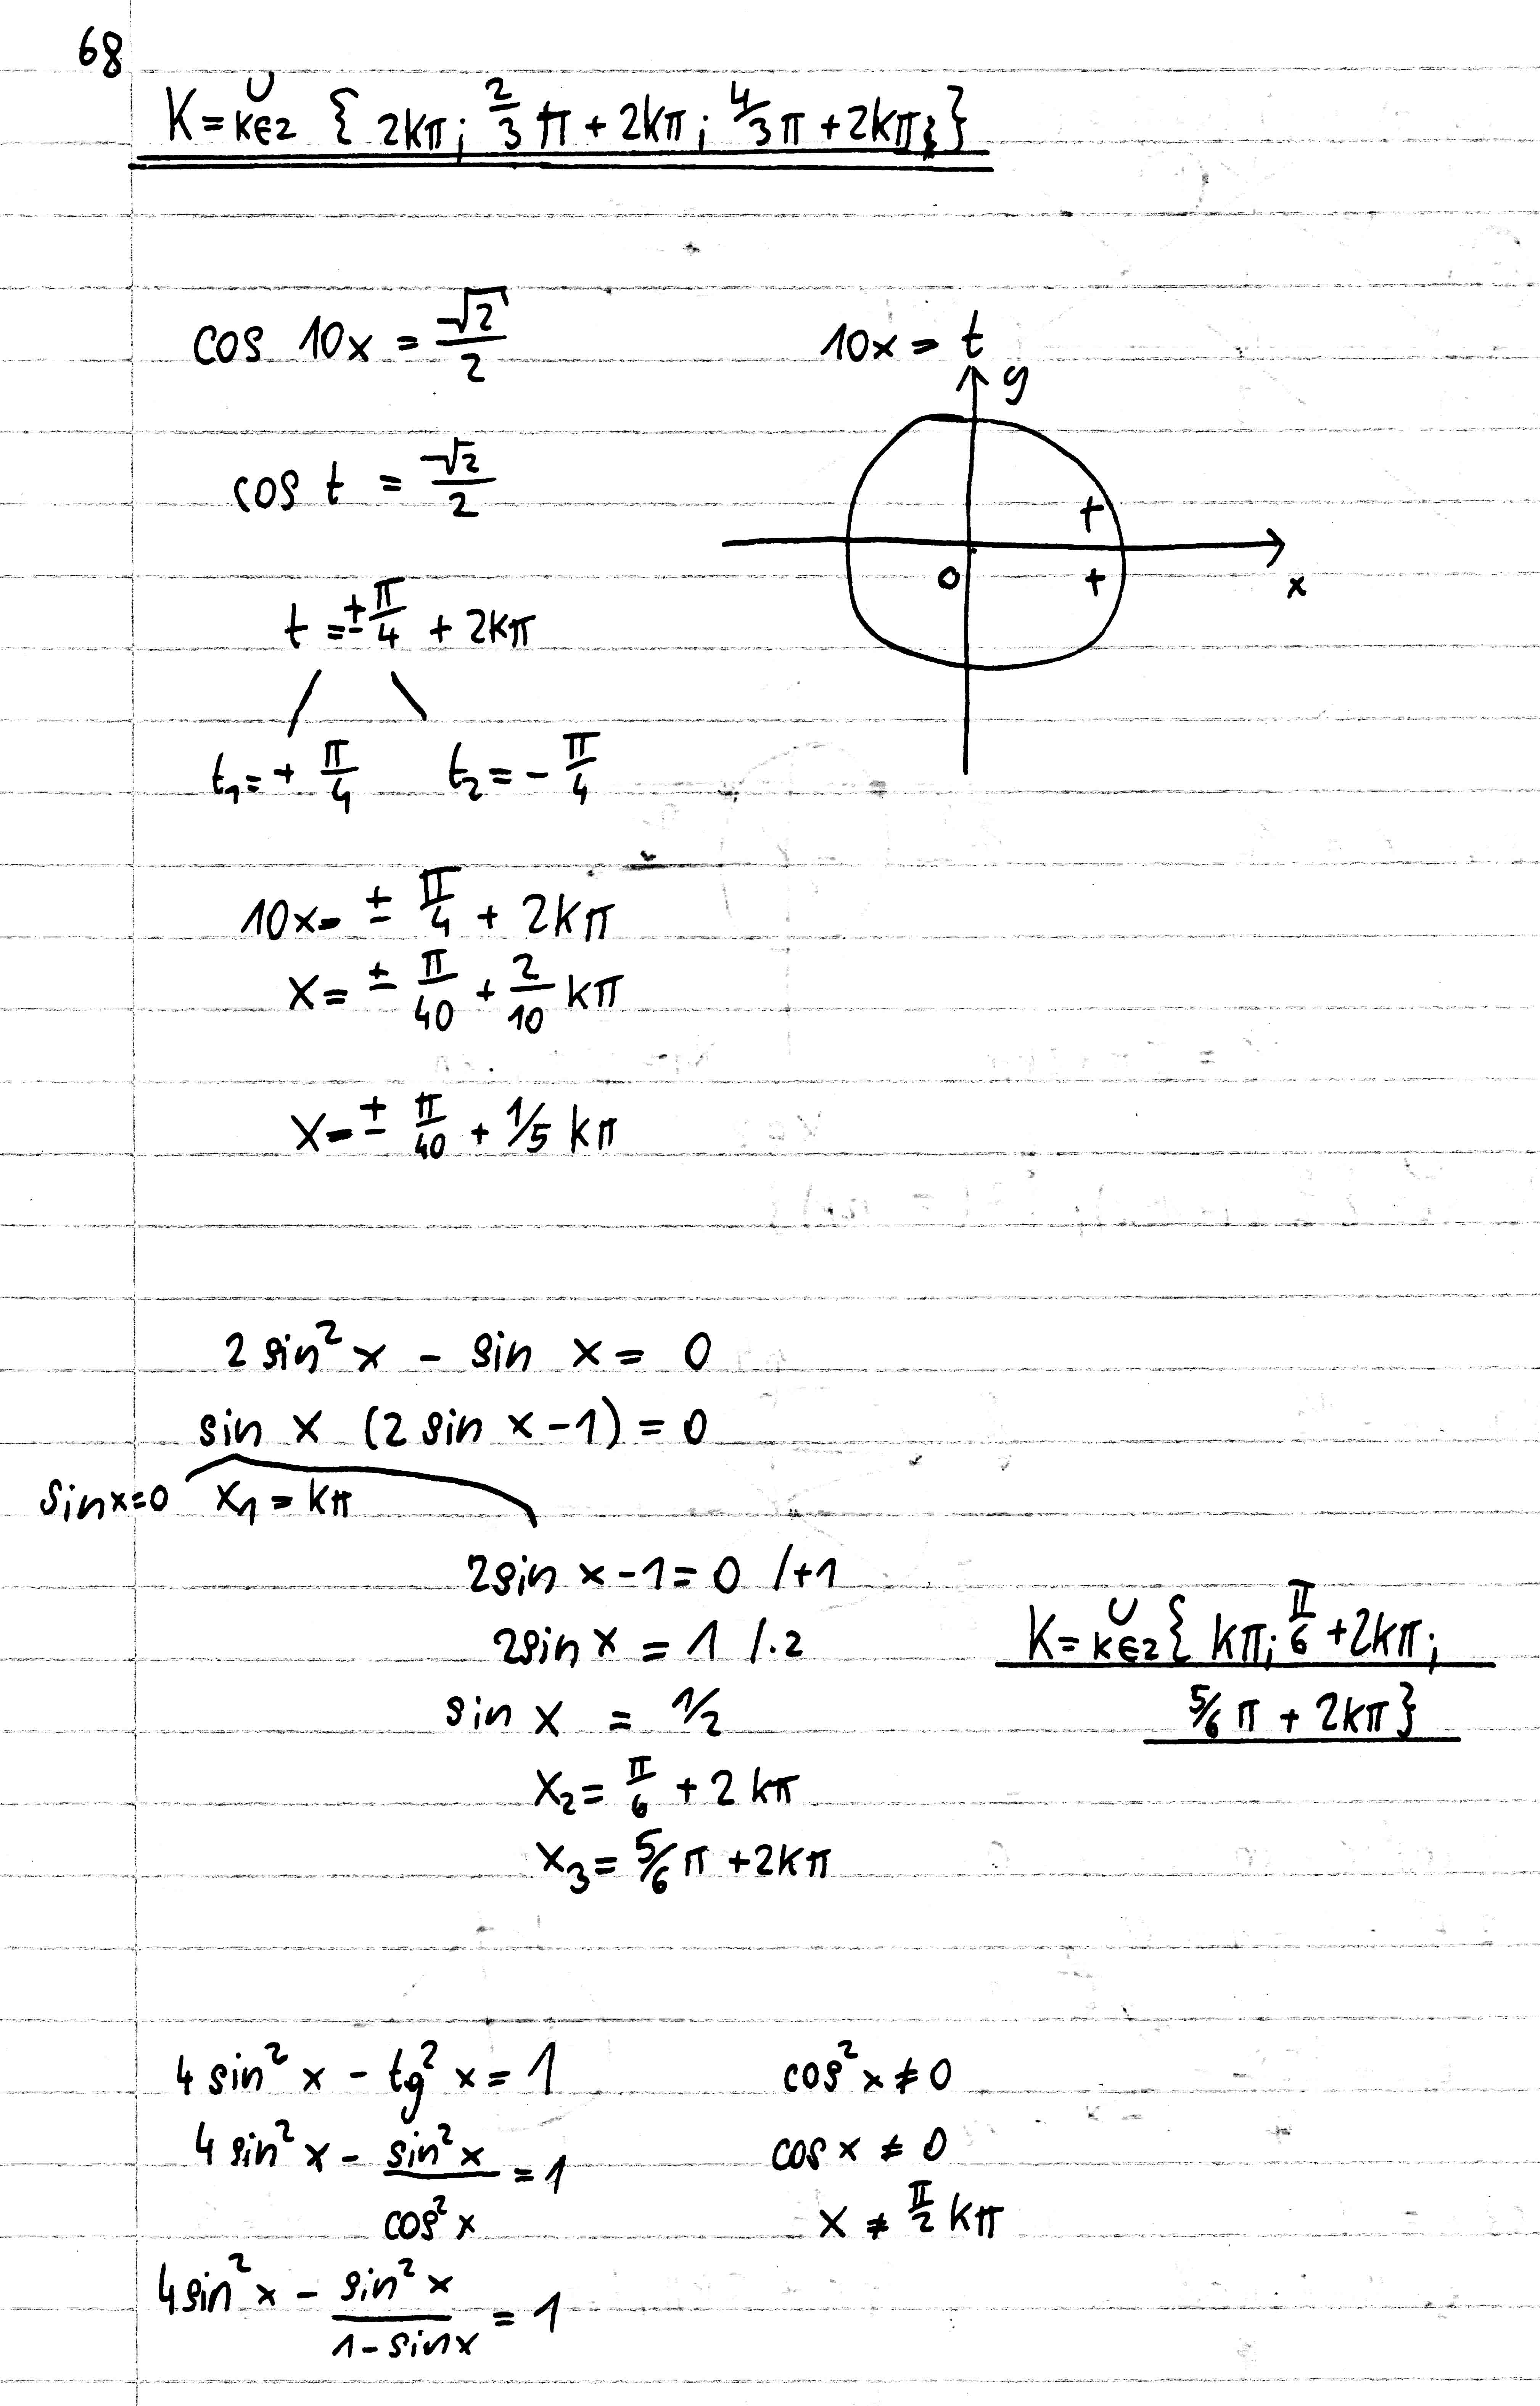 68
K = ∪ k∈z { 2kπ; 2/3 π + 2kπ; 4/3 π + 2kπ; }
cos 10x = √2/2    10x = t
y
cos t = √2/2
+
0 + x
t = ± π/4 + 2kπ
t₁ = + π/4    t₂ = - π/4
10x = ± π/4 + 2kπ
x = ± π/40 + 2/10 kπ
x = ± π/40 + 1/5 kπ
2 sin² x - sin x = 0
sin x (2 sin x - 1) = 0
sin x = 0    x₁ = kπ
2sin x - 1 = 0 /+1
2sin x = 1 /·2    K = ∪ k∈z { kπ; π/6 + 2kπ;
sin x = 1/2    5/6 π + 2kπ }
x₂ = π/6 + 2kπ
x₃ = 5/6 π + 2kπ
4 sin² x - tg² x = 1    cos² x ≠ 0
4 sin² x - sin² x / cos² x = 1    cos x ≠ 0
x ≠ π/2 kπ
4sin² x - sin² x / 1 - sin x = 1